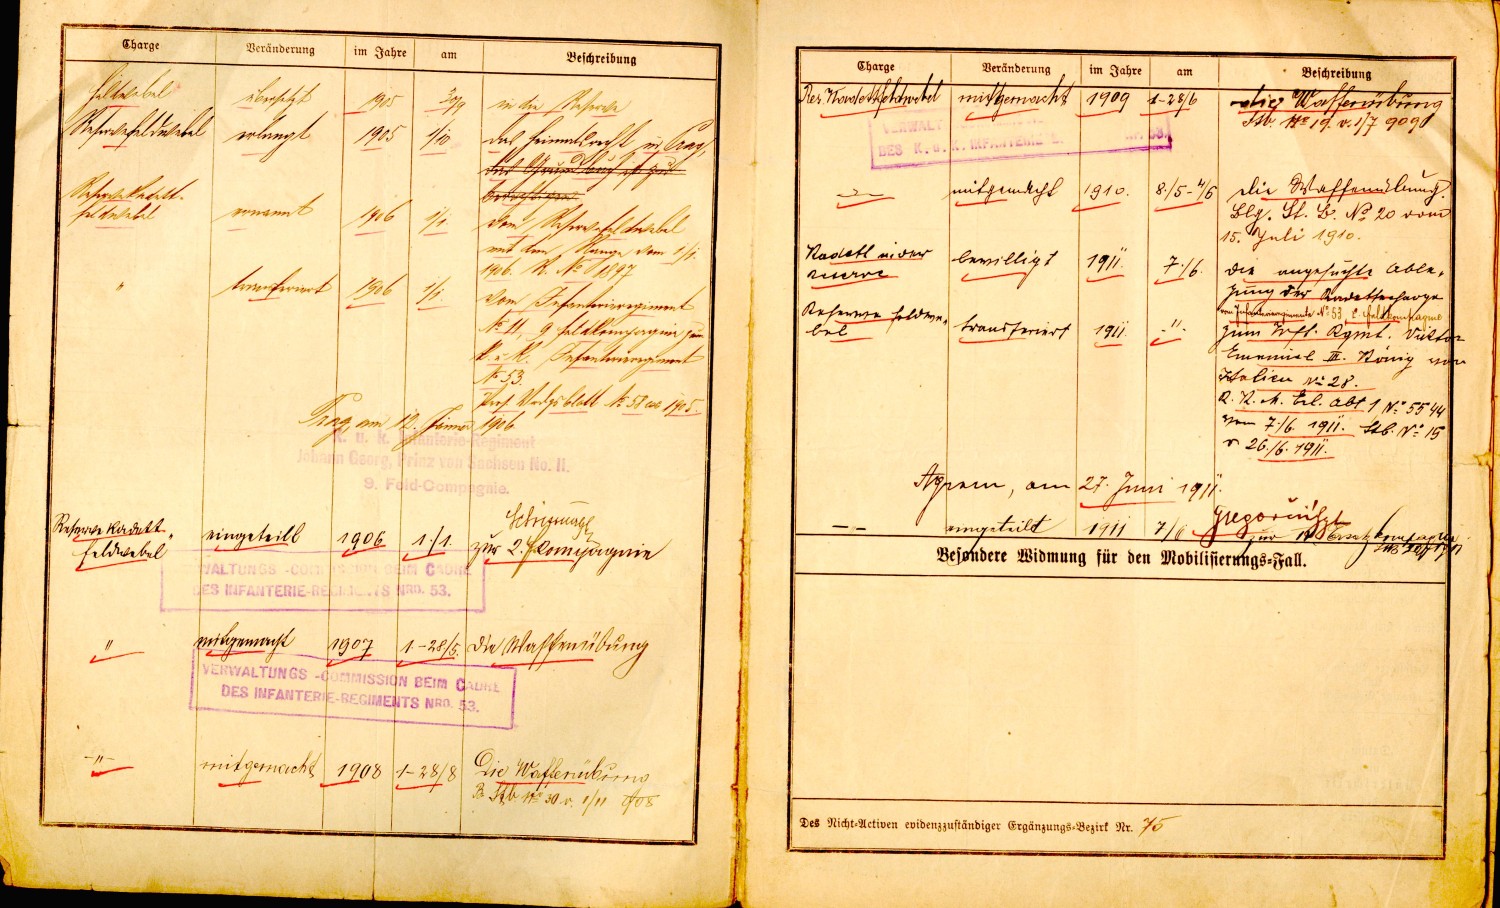 Charge Veränderung im Jahre am Beschreibung
Feldwebel übersetzt 1905 30/9 in die Reserve
Reservefeldwebel erlangt 1905 1/10 das Heimatsrecht in Prag,
Reservekadett-
feldwebel ernannt 1906 1/1. vom Reservefeldwebel
mit dem Range vom 1/1.
1906. R. No 1897
" transferiert 1906 1/1. vom Infanterieregiment
No 11, 9 Feldkompagnie zum
k. u. k. Infanterieregiment
No 53.
Pers. Vdgsblatt No 58 1905.
Prag, am 12. Jänner 1906
K. u. k. Infanterie-Regiment
Johann Georg, Prinz von Sachsen No. 11.
9. Feld-Compagnie.
Reserve Kadett-
feldwebel eingeteilt 1906 1./1. zur 2. Kompagnie
VERWALTUNGS-COMMISSION BEIM CADRE
DES INFANTERIE-REGIMENTS NRO. 53.
" mitgemacht 1907 1-28/5. die Waffenübung
VERWALTUNGS-COMMISSION BEIM CADRE
DES INFANTERIE-REGIMENTS NRO. 53.
-"- mitgemacht 1908 1-28/8 Die Waffenübung
Stb No 30 v. 1/11 908
Charge Veränderung im Jahre am Beschreibung
Res. Kadettfeldwebel mitgemacht 1909 1-28/6 die Waffenübung
Stb. No 19. v. 1/7 909
VERWALT
DES K. u. K. INFANTERIE NR. 53.
-"- mitgemacht 1910. 8./5-4/6 die Waffenübung.
Blg. St. B. No 20 vom
15. Juli 1910.
Kadett in der
Reserve bewilligt 1911. 7./6. die angesuchte Able-
gung der Kadettencharge
Reserve Feldwe-
bel transferiert 1911 -"- vom Infanterieregimente No 53 2. Feldkompagnie
zum Inft. Rgmt. Viktor
Emanuel III. König von
Italien No 28.
R. K. M. Erl. Abt. 1 No 5544
vom 7./6. 1911. Stb. No 15
v 26./6. 1911.
Agram, am 27. Juni 1911.
-"- eingeteilt 1911 7/6 zur Ersatzkompagnie
Besondere Widmung für den Mobilisierungs-Fall.
Des Nicht-Activen evidenzzuständiger Ergänzungs-Bezirk Nr. 75